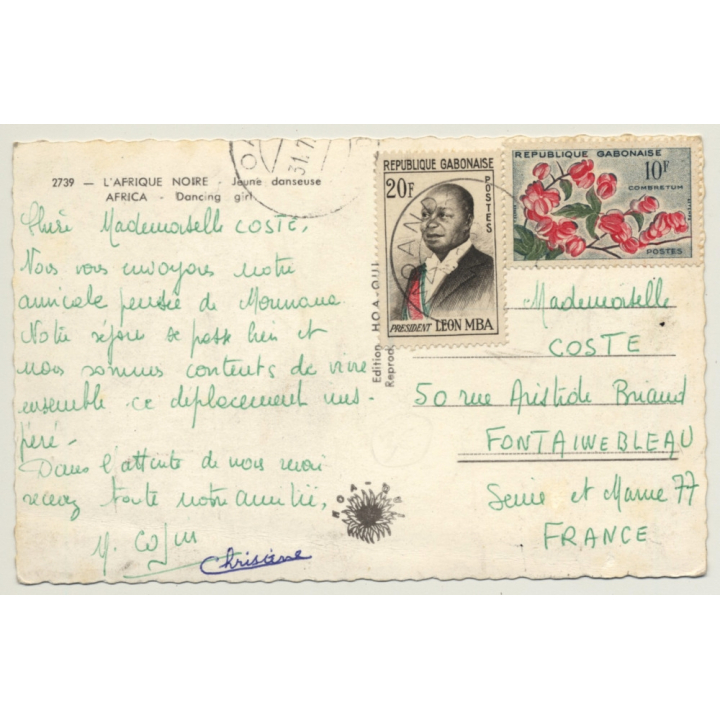 2739 — L'AFRIQUE NOIRE - Jeune danseuse
AFRICA - Dancing girl
Chère Mademoiselle COSTE,
Nous vous envoyons notre
amicale pensée de Mounana.
Notre séjour se passe bien et
nous sommes contents de vivre
ensemble ce déplacement ines-
péré.
Dans l'attente de nous revoir
recevez toute notre amitié,
Christiane
31.7
Edition HOA-QUI
Reprod
HOA-QUI
REPUBLIQUE GABONAISE
20F
POSTES
PRÉSIDENT LEON MBA
REPUBLIQUE GABONAISE
10F
COMBRETUM
POSTES
Mademoiselle
COSTE
50 rue Aristide Briand
FONTAINEBLEAU
Seine et Marne 77
FRANCE